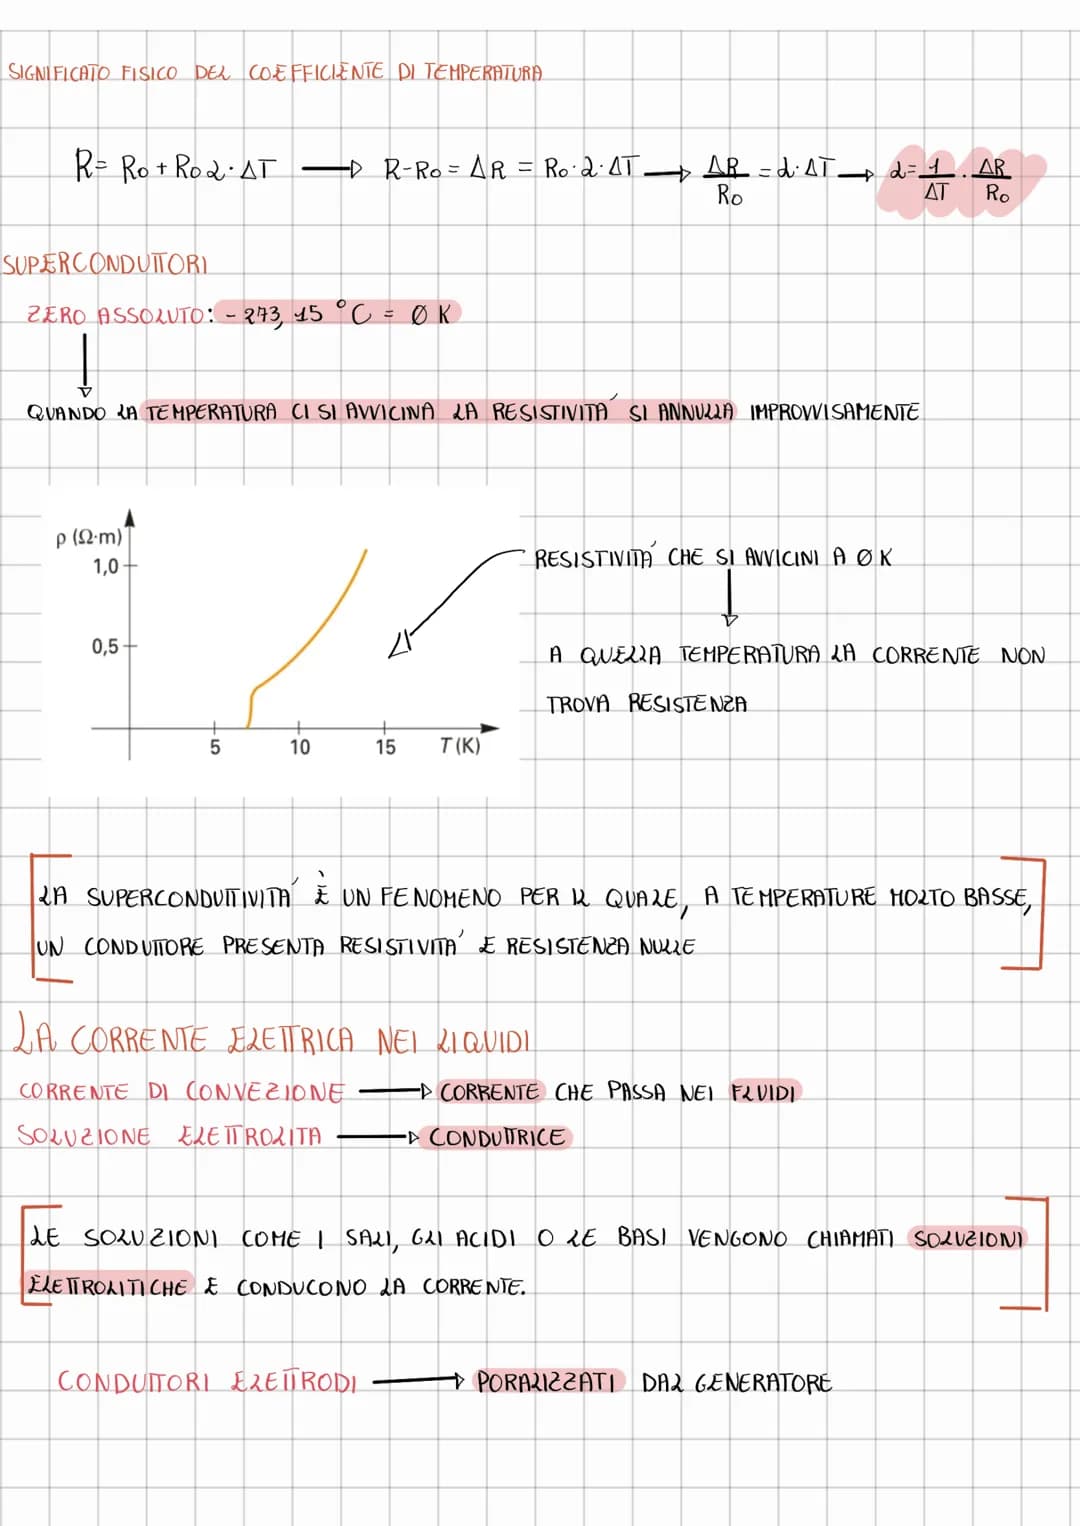 SIGNIFICATO FISICO DEL COEFFICIENTE DI TEMPERATURA
R = R₀ + R₀ α · ΔT → R-R₀ = ΔR = R₀ · α · ΔT → ΔR/R₀ = α · ΔT → α = 1/ΔT · ΔR/R₀
SUPERCONDUTTORI
ZERO ASSOLUTO: - 273,15 °C = Ø K
QUANDO LA TEMPERATURA CI SI AVVICINA LA RESISTIVITA' SI ANNULLA IMPROVVISAMENTE
ρ (Ω·m)
1,0
0,5
5 10 15 T (K)
RESISTIVITA' CHE SI AVVICINI A Ø K
A QUELLA TEMPERATURA LA CORRENTE NON
TROVA RESISTENZA
LA SUPERCONDUTTIVITA' È UN FENOMENO PER IL QUALE, A TEMPERATURE MOLTO BASSE,
UN CONDUTTORE PRESENTA RESISTIVITA' E RESISTENZA NULLE
LA CORRENTE ELETTRICA NEI LIQUIDI
CORRENTE DI CONVEZIONE → CORRENTE CHE PASSA NEI FLUIDI
SOLUZIONE ELETTROLITA → CONDUTTRICE
LE SOLUZIONI COME I SALI, GLI ACIDI O LE BASI VENGONO CHIAMATI SOLUZIONI
ELETTROLITICHE E CONDUCONO LA CORRENTE.
CONDUTTORI ELETTRODI → PORALIZZATI DAL GENERATORE